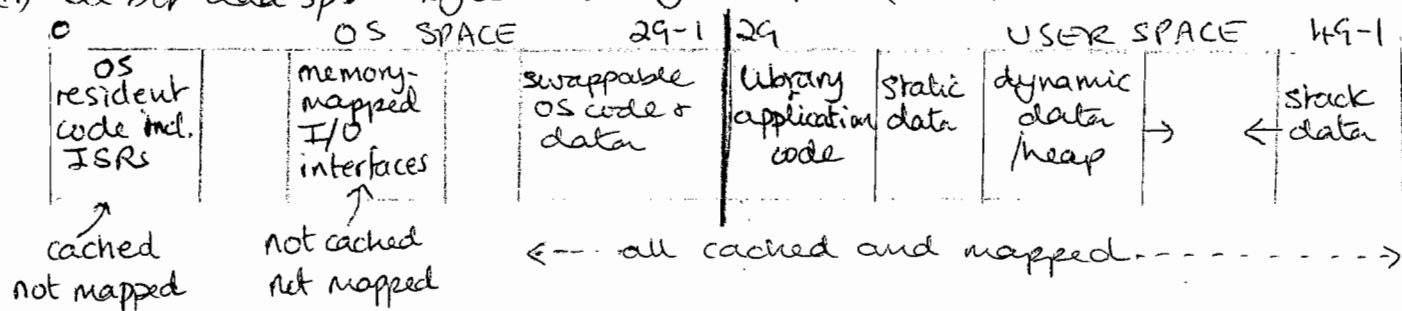 0 OS SPACE 2G-1 2G USER SPACE 4G-1
OS
resident
code incl.
ISRs
memory-
mapped
I/O
interfaces
swappable
OS code &
data
library
+
application
code
static
data
dynamic
data
/heap
→
← stack
data
cached
not mapped
not cached
not mapped
<--- all cached and mapped ---------->